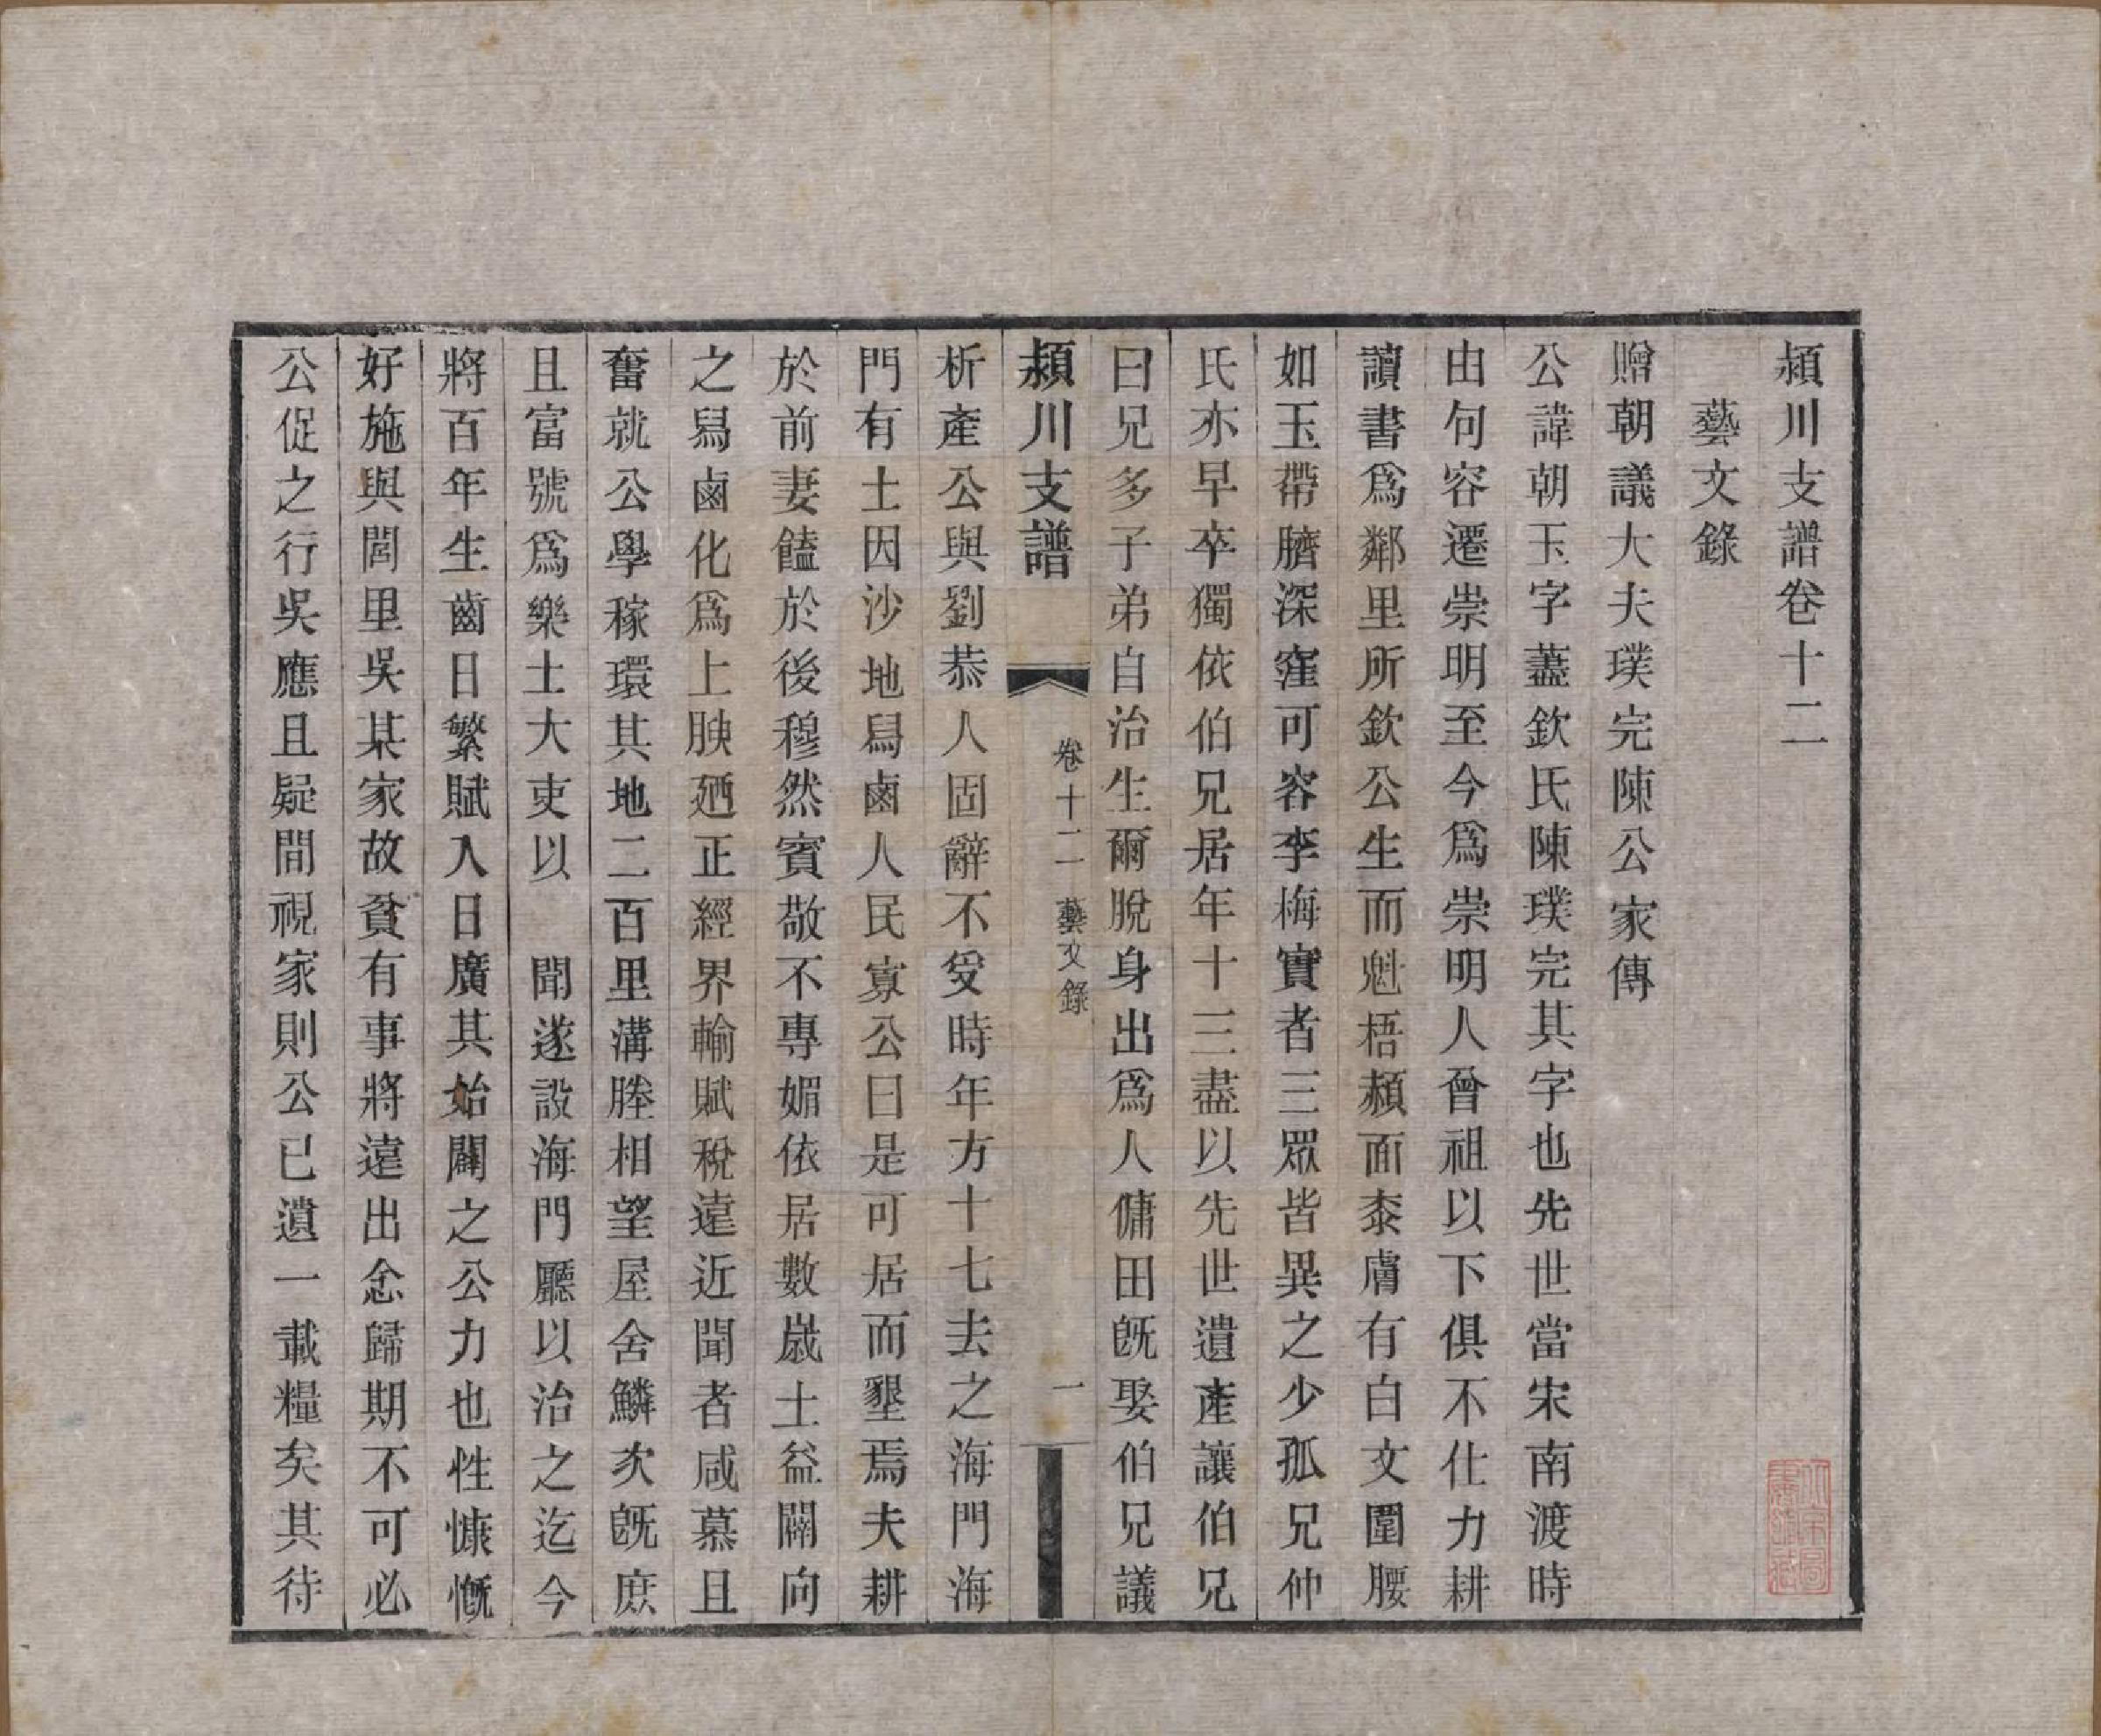 潁川支譜卷十二
藝文錄
贈朝議大夫璞完陳公家傳
公諱朝玉字藎欽氏陳璞完其字也先世當宋南渡時
由句容遷崇明至今爲崇明人曾祖以下俱不仕力耕
讀書爲鄰里所欽公生而魁梧頳面桼膚有白文圍腰
如玉帶臍深窪可容李梅實者三眾皆異之少孤兄仲
氏亦早卒獨依伯兄居年十三盡以先世遺產讓伯兄
曰兄多子弟自治生爾脫身出爲人傭田旣娶伯兄議
潁川支譜
卷十二 藝文錄
一
析產公與劉恭人固辭不受時年方十七去之海門海
門有土因沙地舃鹵人民寡公曰是可居而墾焉夫耕
於前妻饁於後穆然賓敬不專媚依居數歲土益闢向
之舃鹵化爲上腴廼正經界輸賦稅遠近聞者咸慕且
奮就公學稼環其地二百里溝塍相望屋舍鱗次旣庶
且富號爲樂土大吏以 聞遂設海門廳以治之迄今
將百年生齒日繁賦入日廣其始闢之公力也性慷慨
好施與閭里吳某家故貧有事將遠出念歸期不可必
公促之行吳應且疑間視家則公已遺一載糧矣其待